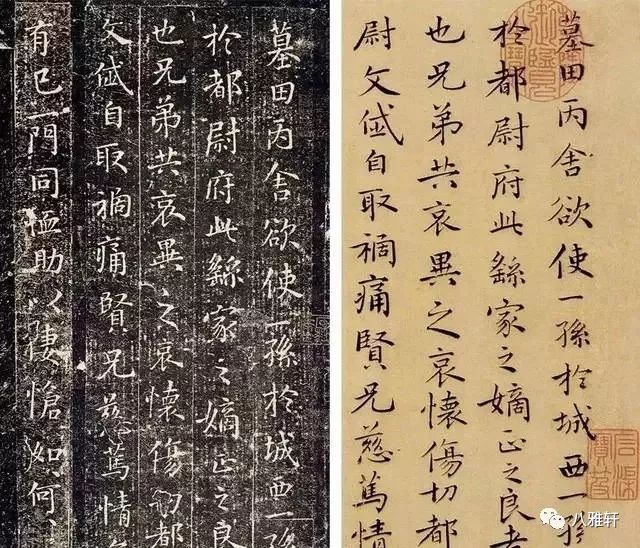 墓田丙舍欲使一孫於城西一孫
於都尉府此繇家之嫡正之良
也兄弟共哀異之哀懷傷切都
文岱自取禍痛賢兄慈篤情
有已一門同恤助以悽愴如何
墓田丙舍欲使一孫於城西一孫
於都尉府此繇家之嫡正之良者
也兄弟共哀異之哀懷傷切都
尉文岱自取禍痛賢兄慈篤情
八雅轩